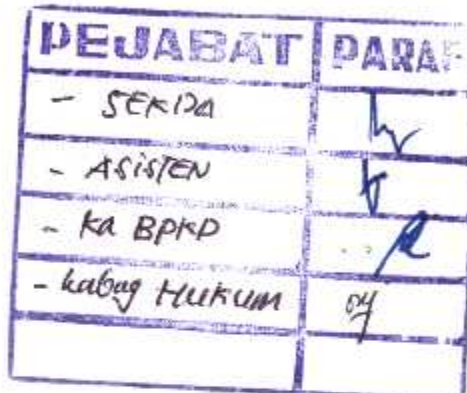 PEJABAT PARAF
- SEKDA
- ASISTEN
- Ka BPKP
- Kabag HUKUM